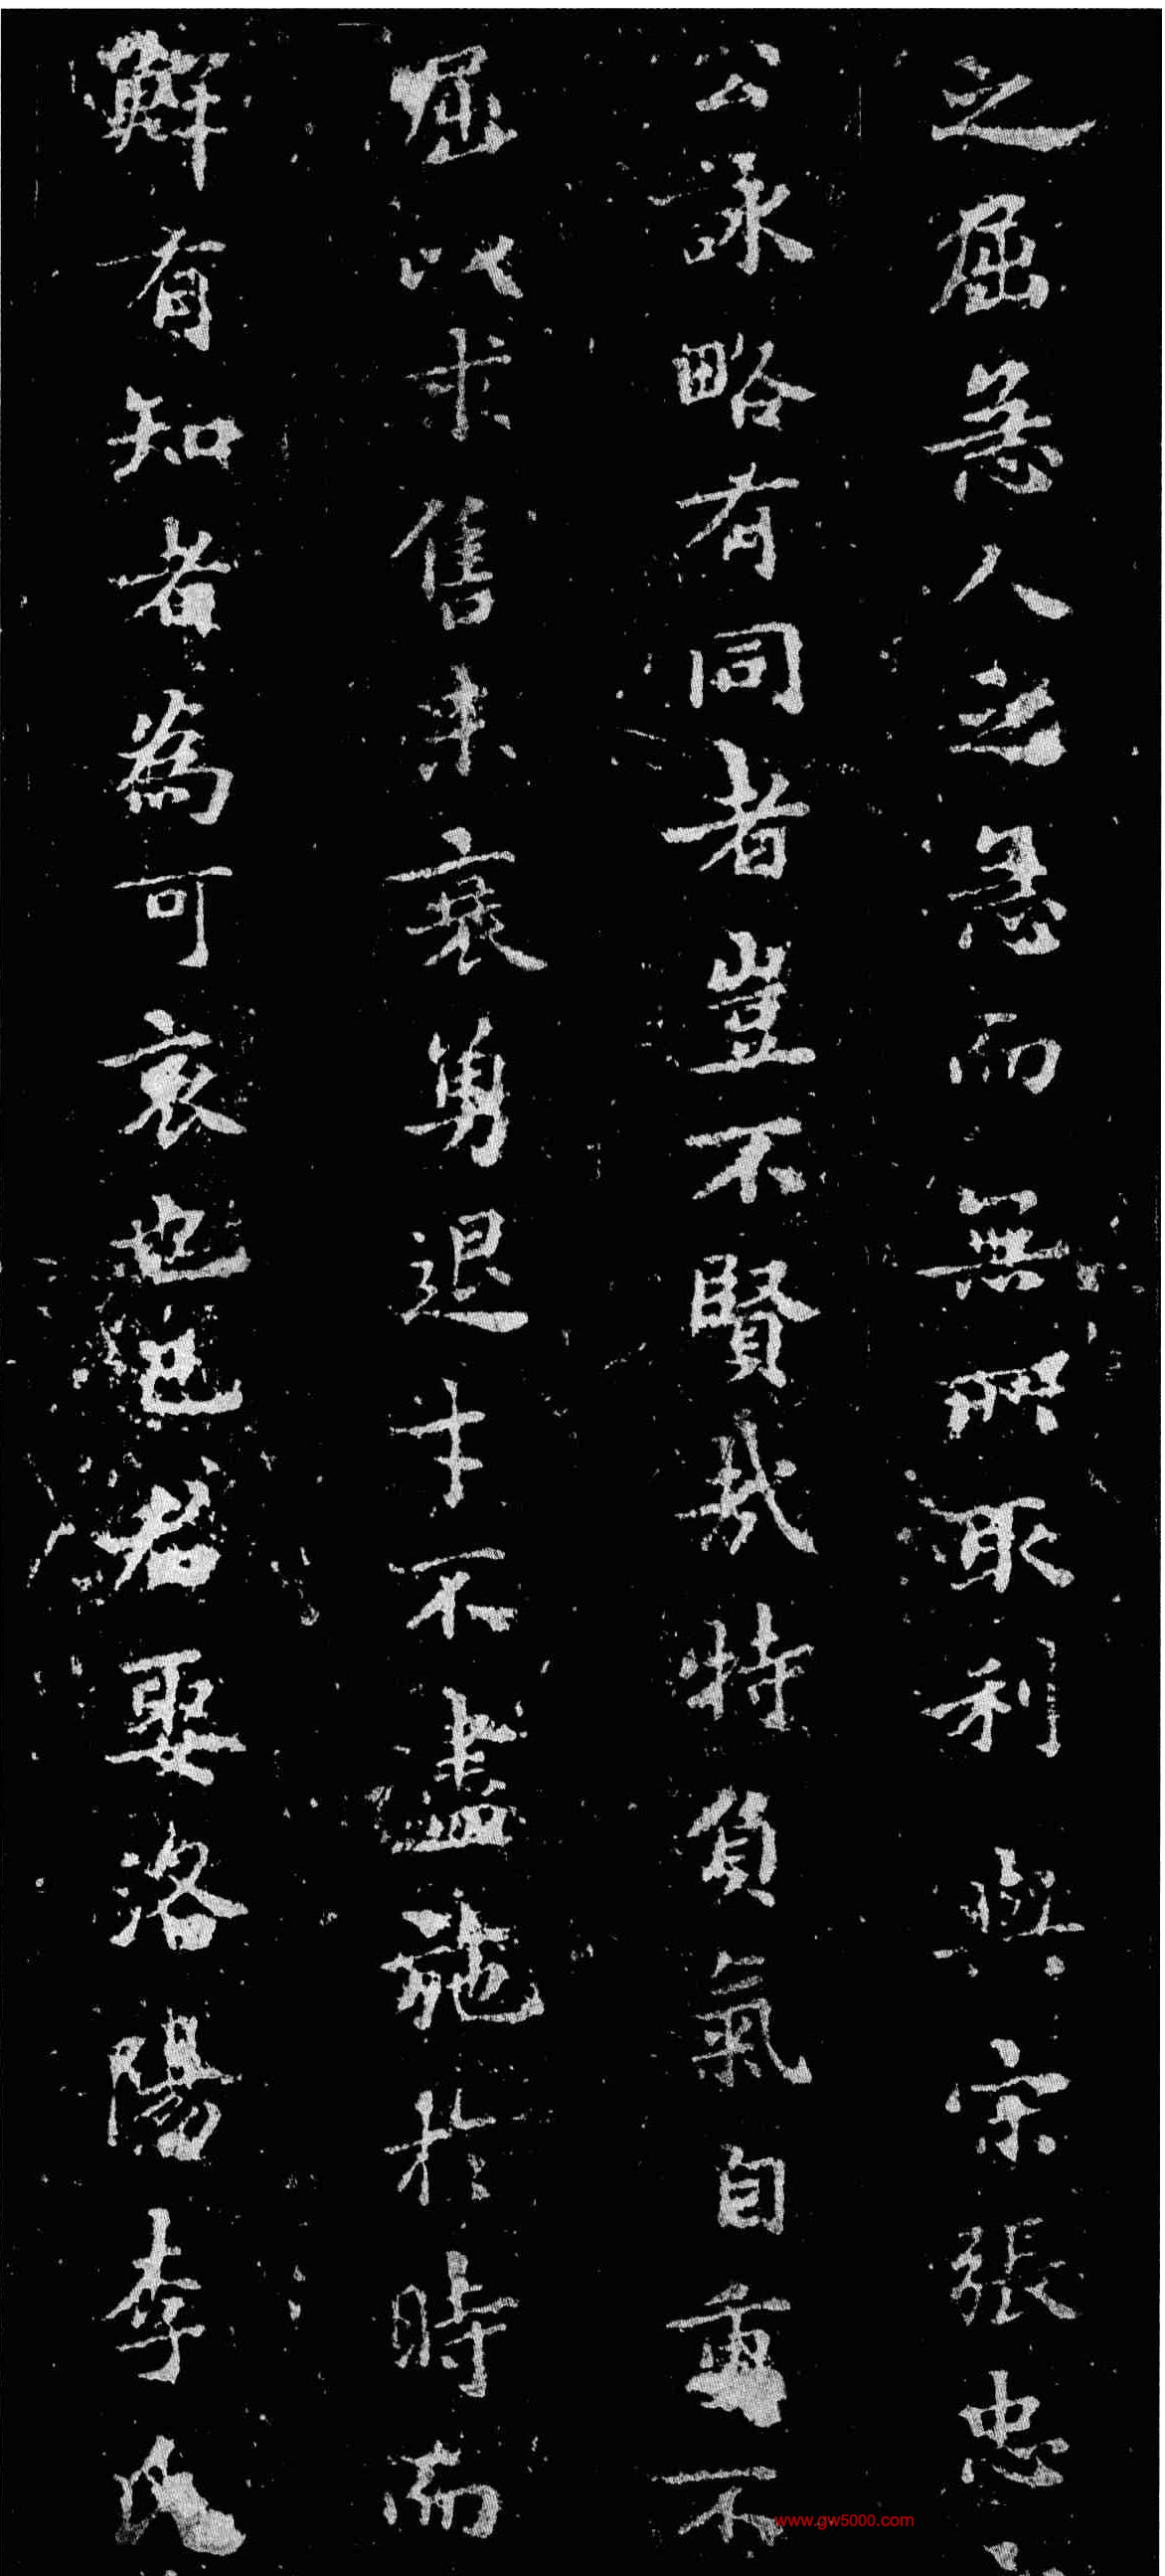 之屈急人之急而無所取利與宋張忠
公詠略有同者豈不賢哉特負氣自重不
屈以求售未衰勇退才不盡施於時而
鮮有知者為可哀也已君娶洛陽李氏
www.gw5000.com